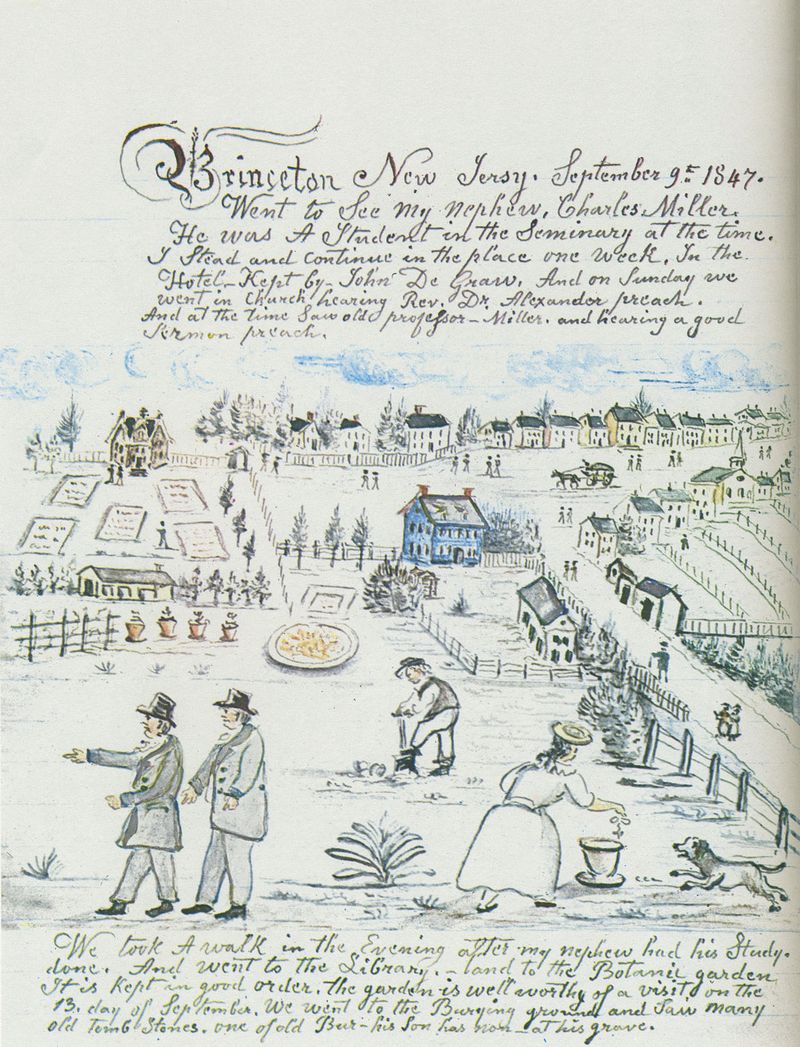 Princeton New Jersy. September 9th 1847.
Went to See my nephew, Charles Miller.
He was A Student in the Seminary at the time.
I Stead and Continue in the place one week, In the
Hotel, Kept by John De Graw. And on Sunday we
went in Church, hearing Rev. Dr. Alexander preach.
And at the time Saw old professor Miller. and hearing a good
Sermon preach.
We took A walk in the Evening after my nephew had his Study.
done. And went to the Library, and to the Botanic garden
It is Kept in good order. the garden is well worthy of a visit, on the
13. day of September. We went to the Burying ground and Saw many
old tomb Stones. one of old Bur his Son has non at his grave.